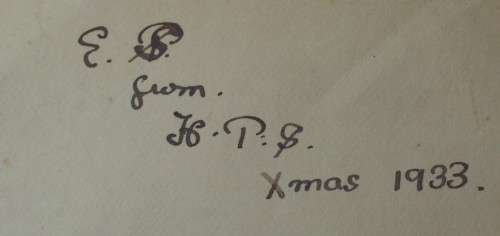 E. S.
from.
H. P. S.
Xmas 1933.